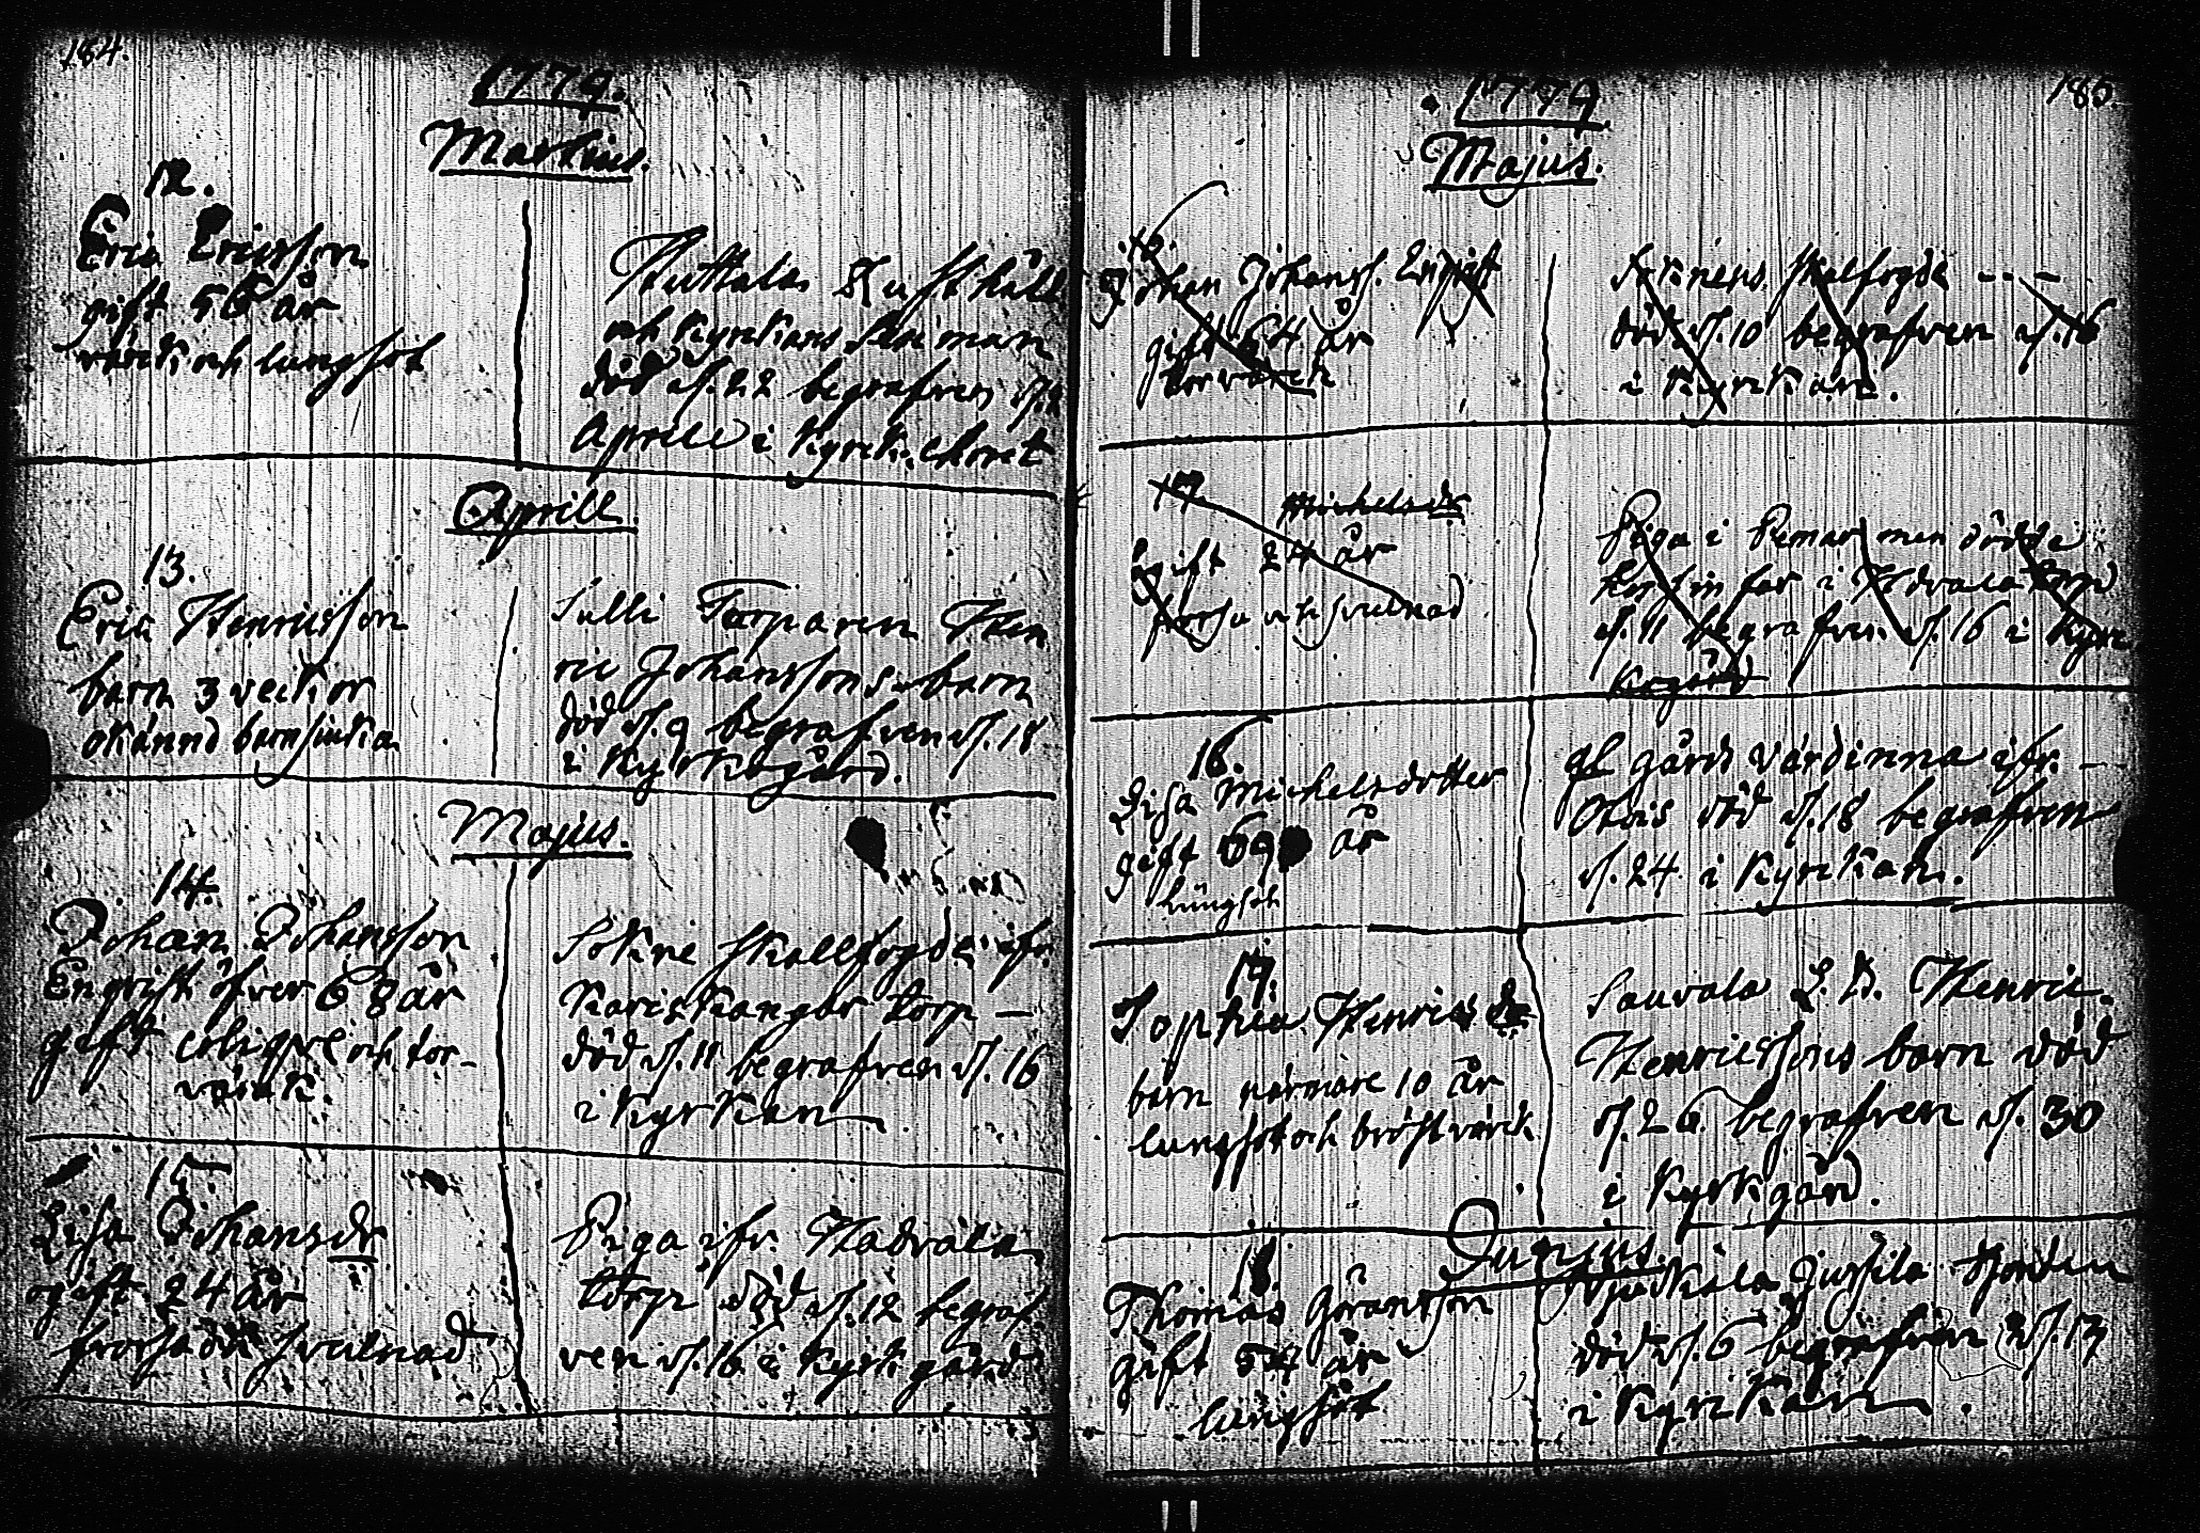 184.
1779.
Martius.
12.
Eric Ericsson
gift 56 år
värck och lungsot
Rusthåll
och Kyrckians
död d. 22 begrafven d.
Aprill i Kyrck. Choret
Aprill.
13.
Eric Henricsson
barn 3 veckor
okännd barnsiuka
Sulli Torparen Hen
ric Johanssons barn
död d. 9 begrafven d. 18
i Kyrkogård.
Majus.
14.
Johan Johansson
Engvist öfver 68 år
gift och tor-
värck.
Sokne skallfogde ifr.
Kariskangar torp —
död d. 11 begrafven d. 16
i Kyrkan
15.
Lisa Johansdr
ogift 24 år
frossa och svulnad
Piga ifr. Hadvala
torp död d. 12 begraf
ven d. 16 i Kyrkgård
1779
185
Majus.
Johan Johanss. Engvist
gift 64 år
torvärck
Socknens skalfogde - - -
död d. 10 begrafven d. 16
i Kyrckan.
17
Michelsdr
ogift 24 år
frossa och svulnad
Piga i Pemar men dödde
hos sin far i Hadvala torp
d. 11 begrafven d. 16 i Kyrc
kogård
16.
Lisa Michelsdotter
gift 69 år
lungsot
gl gårds värdinna ifr. —
Otois död d. 18 begrafven
d. 24 i Kyrckan.
17.
Sophia Henricsdr
barn närmare 10 år
lungsot och bröstvärck
Sauvala Henric
Henricssons barn död
d. 26 begrafven d. 30
i Kyrkgård.
Junius.
18.
Thomas Göransson
gift 54 år
lungsot
Jussila
död d. 6 begrafven d. 13
i Kyrckan.